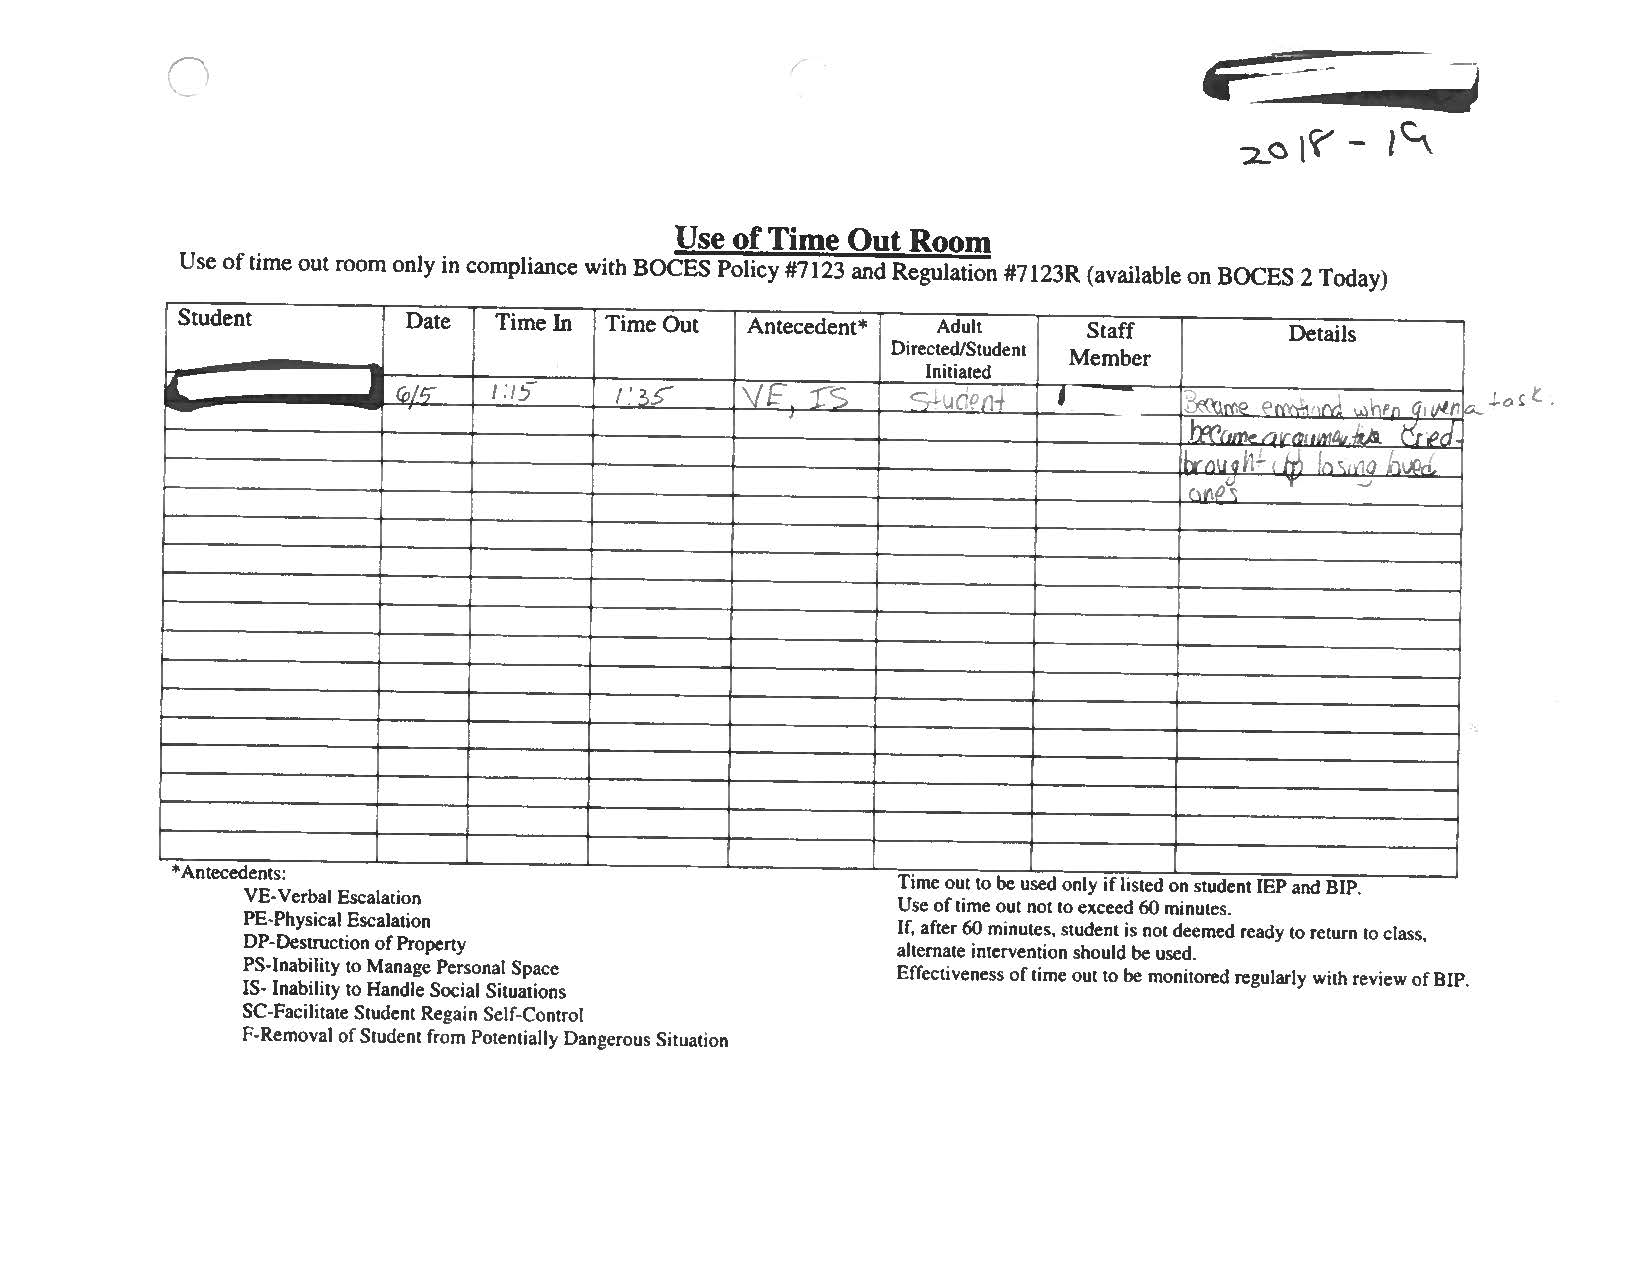 2018 - 19
Use of Time Out Room
Use of time out room only in compliance with BOCES Policy #7123 and Regulation #7123R (available on BOCES 2 Today)
Student Date Time In Time Out Antecedent* Adult Directed/Student Initiated Staff Member Details
6/5 1:15 1:35 VE, IS Student Became emotional when given a task.
became argumentative Cried-
brought up losing loved
ones
*Antecedents:
VE-Verbal Escalation
PE-Physical Escalation
DP-Destruction of Property
PS-Inability to Manage Personal Space
IS- Inability to Handle Social Situations
SC-Facilitate Student Regain Self-Control
F-Removal of Student from Potentially Dangerous Situation
Time out to be used only if listed on student IEP and BIP.
Use of time out not to exceed 60 minutes.
If, after 60 minutes, student is not deemed ready to return to class,
alternate intervention should be used.
Effectiveness of time out to be monitored regularly with review of BIP.